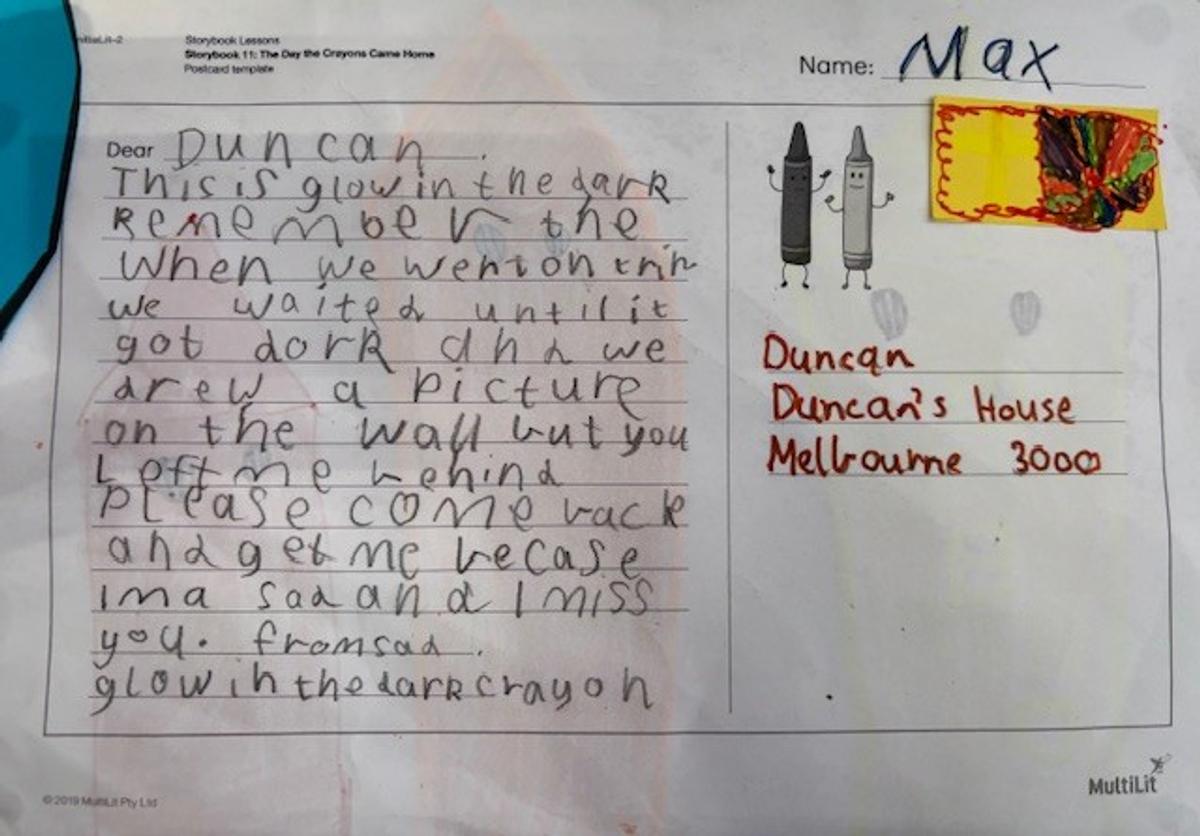 InitiaLit–2
Storybook Lessons
Storybook 11: The Day the Crayons Came Home
Postcard template
Name: Max
Dear Duncan.
This is glow in the dark
Remember the
When we went on trip
we waited until it
got dork and we
drew a picture
on the wall but you
Left me behind
please come back
and get me becase
Ima sad and I miss
you. from sad.
glow in the dark crayon
Duncan
Duncan's House
Melbourne 3000
© 2019 MultiLit Pty Ltd
MultiLit